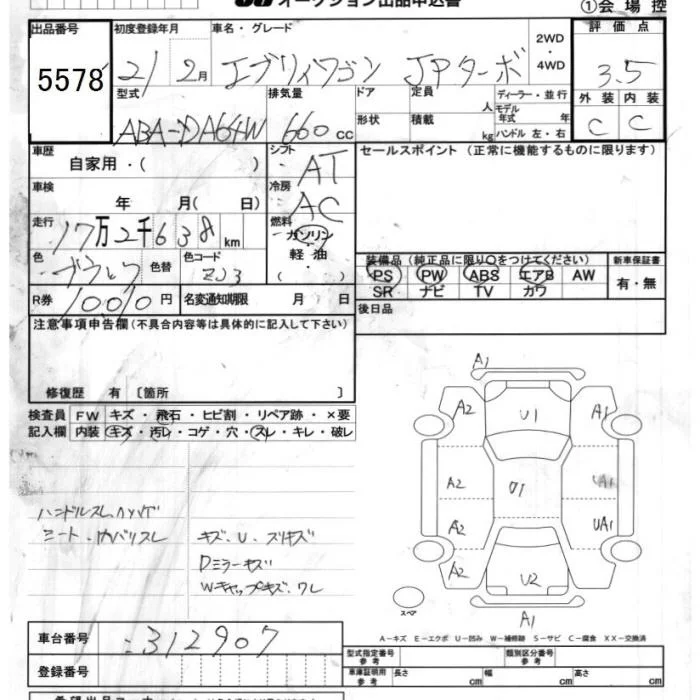 オークション出品申込書
①会場控
出品番号 初度登録年月 車名・グレード 2WD・4WD 評価点
5578 21 2月 エブリイワゴン JPターボ 3.5
型式 排気量 ドア 定員 人 ディーラー・並行 外装 内装
ABA-DA64W 660 cc 形状 積載 kg モデル年式 年 C C
ハンドル 左・右
車歴 自家用・( ) シフト AT セールスポイント (正常に機能するものに限ります)
車検 年 月( 日) 冷房 AC
走行 17万2千638km 燃料 ガソリン
軽油
( )
色 ブラック 色替 色コード ZJ3 装備品 (純正品に限り〇をつけてください) 新車保証書
PS PW ABS エアB AW 有・無
SR ナビ TV カワ
R券 10010円 名変通知期限 月 日 後日品
注意事項申告欄(不具合内容等は具体的に記入して下さい)
修復歴 有 〔箇所 〕
検査員 FW キズ・飛石・ヒビ割・リペア跡・×要
記入欄 内装 キズ・汚レ・コゲ・穴・スレ・キレ・破レ
ハンドルスレ
キズ、U、スリキズ
Dミラーキズ
Wキャップキズ、ワレ
A1
A2 U1 A1
A2 U1 UA1
A2 UA1
A2 U2
A1
スペア
A−キズ E−エクボ U−凹み W−補修跡 S−サビ C−腐食 XX−交換済
車台番号 312907
型式指定番号 参考 類別区分番号 参考
登録番号 車庫証明用 参考 長さ cm 幅 cm 高さ cm